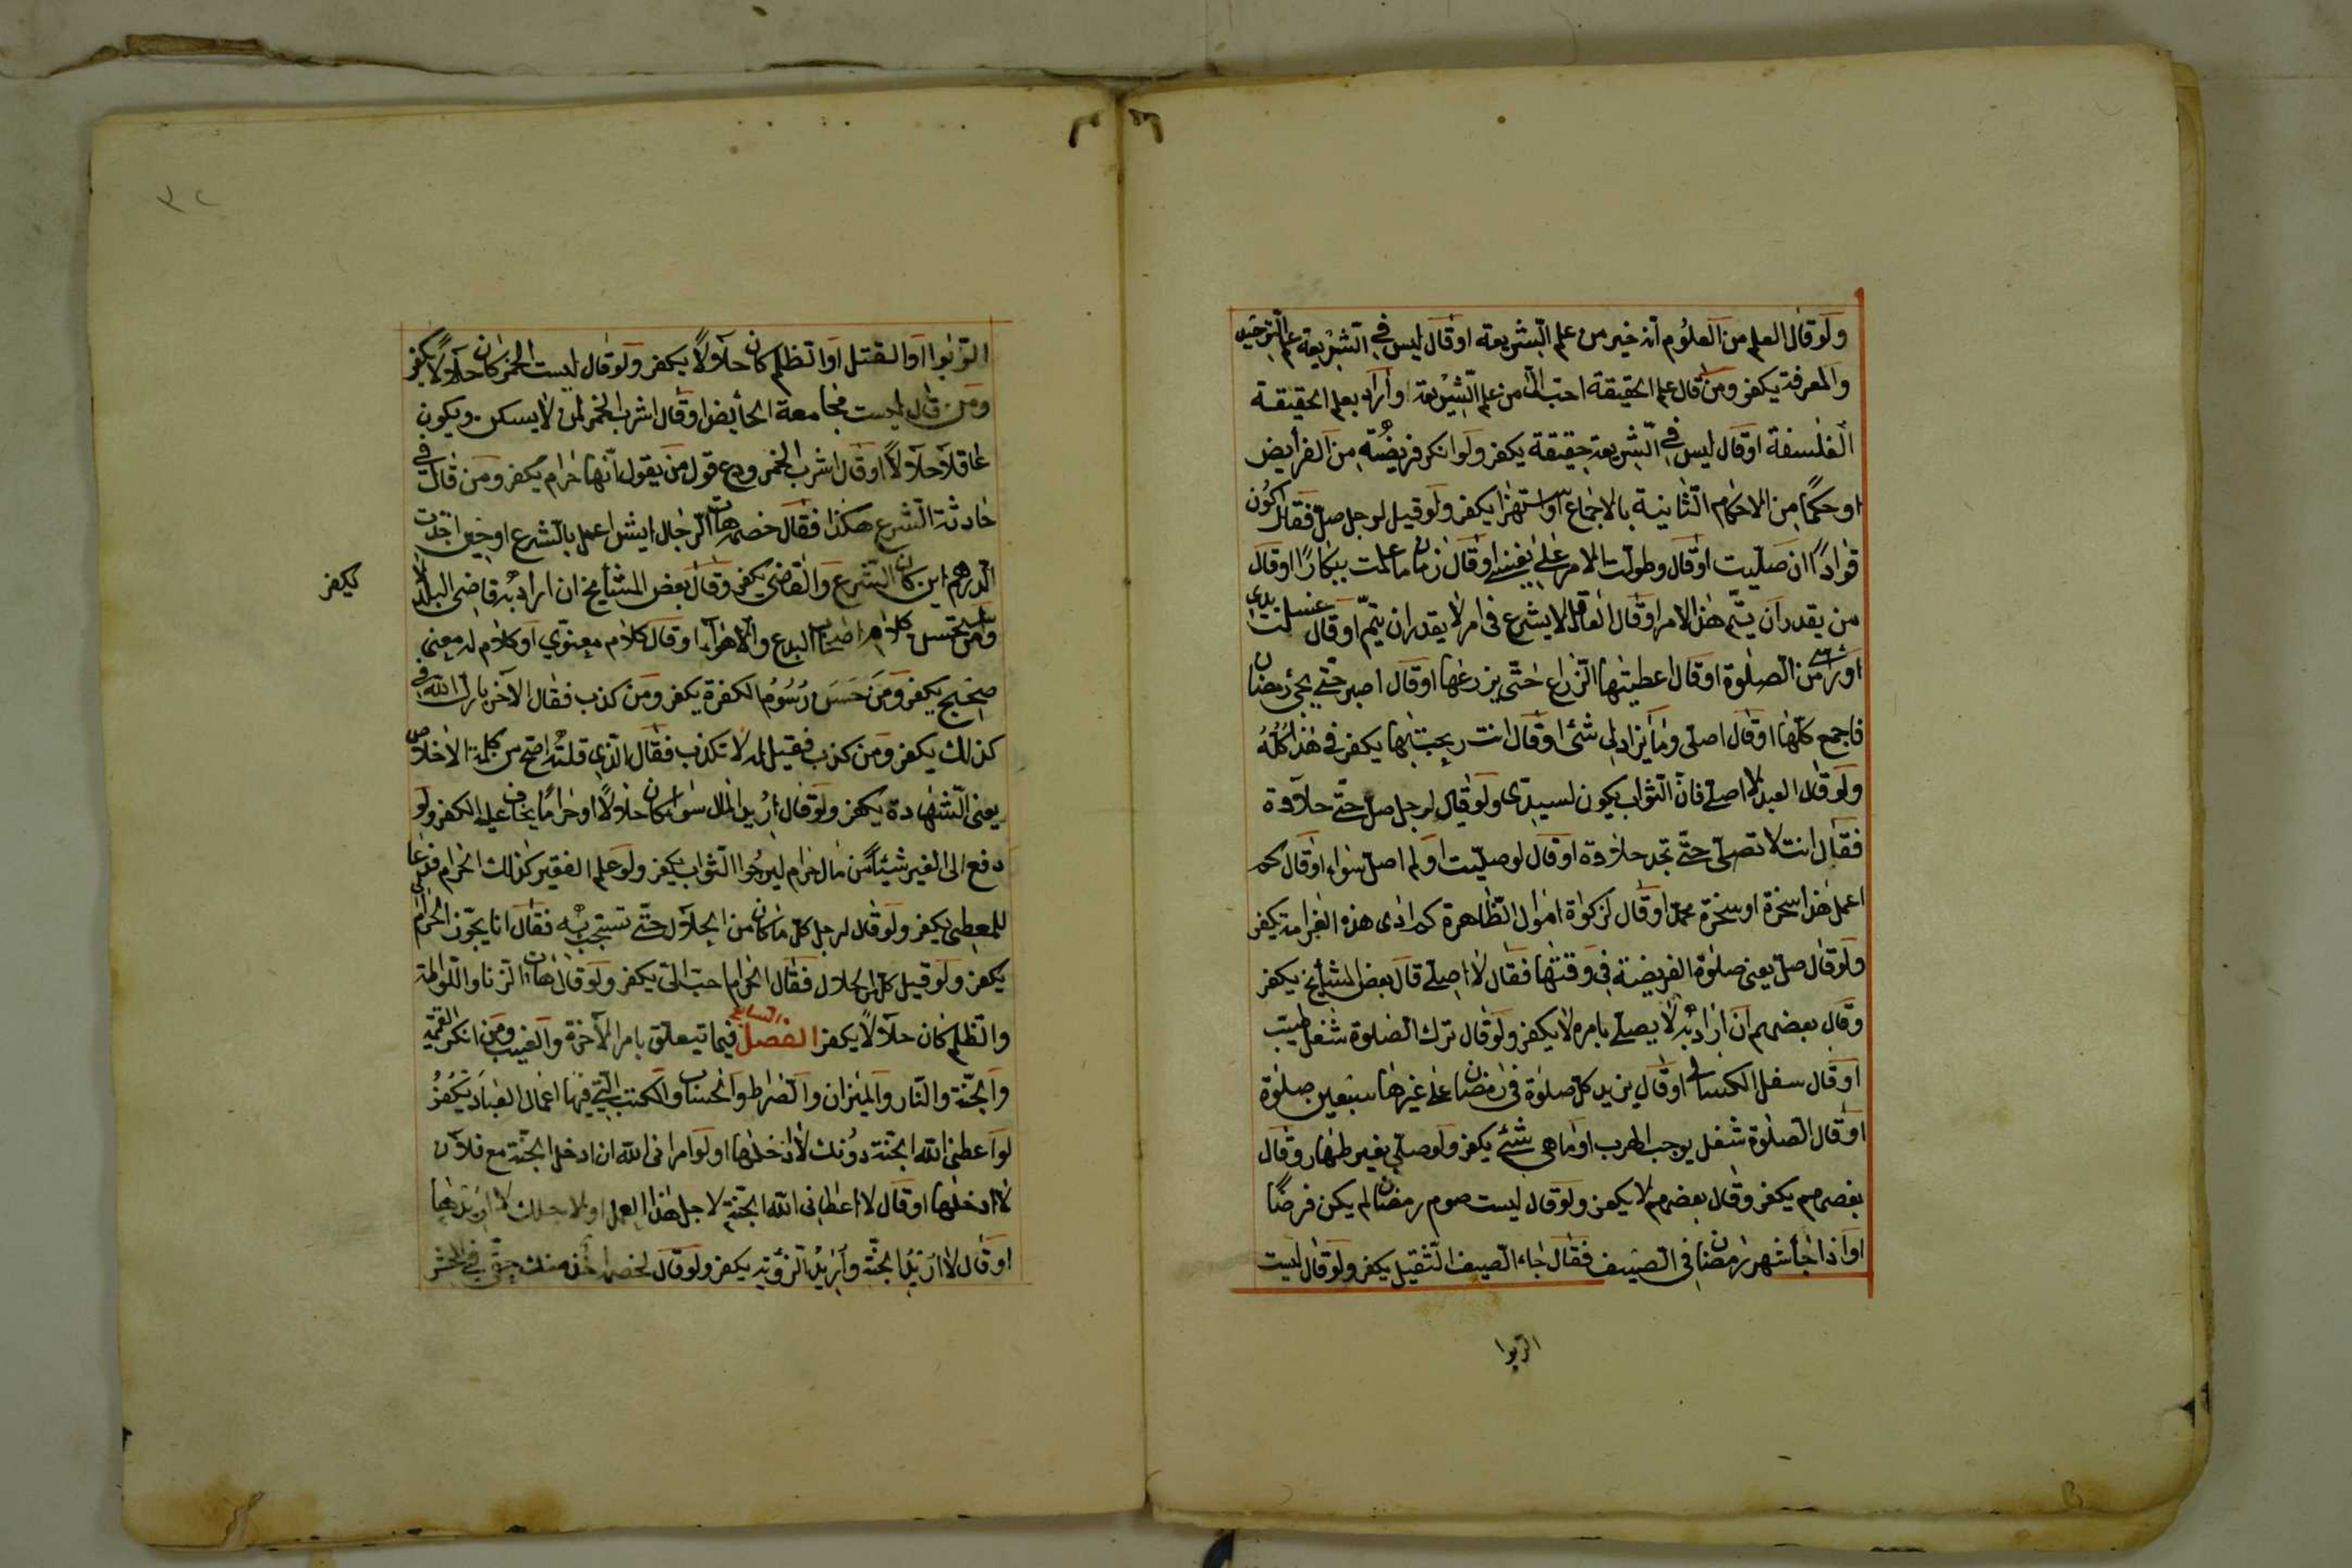 ولو قال العلم من العلوم انه خير من علم الشريعة او قال ليس في الشريعة علم التوحيد
والمعرفة يكفر ومن قال علم الحقيقة احب الي من علم الشريعة او اراد بعلم الحقيقة
الفلسفة او قال ليس في الشريعة حقيقة يكفر ولو انكر فريضة من الفرايض
او حكما من الاحكام الثانية بالاجماع او استهزا يكفر ولو قيل لرجل صل فقال اكون
قوادا ان صليت او قال وطولت الامر على نفسي او قال زمان ما عملت بيكارا او قال
من يقدر ان يتم هذا الامر او قال العاقل لا يشرع في امر لا يقدر ان يتم او قال غسلت يدي
من الصلوة او قال اعطيتها الزراع حتى يزرعها او قال اصبر حتى يجئ رمضان
فاجمع كلها او قال اصلى وما يزاد لي شئ او قال انت ربحت بها يكفر في هذا كله
ولو قال العبد لا اصلي فان الثواب يكون لسيدى ولو قال لرجل صل حتى حلاوة
فقال انت لا تصلى حتى تجد حلاوة او قال لو صليت او لم اصل سواء او قال كم
اعمل هذا سخرة او سخرة محمد او قال لزكوة اموال الظاهرة كم ادى هذه الغرامة يكفر
ولو قال صل يعنى صلوة الفريضة في وقتها فقال لا اصلى قال بعض المشايخ يكفر
وقال بعضهم ان اراد به لا يصلى بامره لا يكفر ولو قال ترك الصلوة شغل طيب
او قال سفل الكسالى او قال يزيد كل صلوة في رمضان على غيرها سبعين صلوة
او قال الصلوة شغل يوجب الهرب او ما هي شئ يكفر ولو صلى بغير طهار وقال
بعضهم يكفر وقال بعضهم لا يكفر ولو قال ليست صوم رمضان لم يكن فرضا
او اذا جأ شهر رمضان في الصيف فقال جاء الصيف الثقيل يكفر ولو قال ليست
الربوا
الربوا او القتل او الظلم كان حلالا يكفر ولو قال ليست الخمر كان حلالا يكفر
ومن قال ليست مجامعة الحأيض او قال اشرب الخمر لمن لا يسكر ويكون
عاقلا حلالا او قال اشرب الخمر ودع قول من يقول انها حرام يكفر ومن قال في
حادثة الشرع هكذا فقال خصمه هات الرجال ايش اعمل بالشرع او حين اخذت
الدرهم اين كان الشرع والقاضي يكفر وقال بعض المشايخ ان اراد به قاضى البلد لا
يكفر
ومن تحسن كلام اصحاب البدع والاهواء او قال كلام معنوي او كلام له معنى
صحيح يكفر ومن حسن رسوم الكفرة يكفر ومن كذب فقال الآخر بارك الله في
كذلك يكفر ومن كذب فقيل له لا تكذب فقال الذي قلته اصح من كلمة الاخلاص
يعنى الشهادة يكفر ولو قال اريد المال سواء كان حلالا او حراما يخاف عليه الكفر ولو
دفع الى الفير شيئا من مال حرام ليرجوا الثواب يكفر ولو علم الفقير كذلك الحرام فدعا
للمعطى يكفر ولو قال لرجل كل ما كان من الحلال حتى تستجب به فقال انا يجوز الي الحرام
يكفر ولو قيل كل من الحلال فقال الحرام احب الي يكفر ولو قال هات الزنا واللواطة
والظلم كان حلالا يكفر الفصل السابع فيما تيعلق بامر الآخرة والغيب ومن انكر القيمة
والجنة والنار والميزان والصراط والحساب والكتب التي فيها اعمال العباد يكفر
لو اعطنى الله الجنة دونك لا ادخلها او لو امرانى الله ان ادخل الجنة مع فلان
لا ادخلها او قال لا اعطانى الله الجنة لاجل هذا العمل او لاجلك لا اريدها
او قال لا اريد الجنة واريد الرؤية يكفر ولو قال لخصمه اخذ منك حقى في المحشر